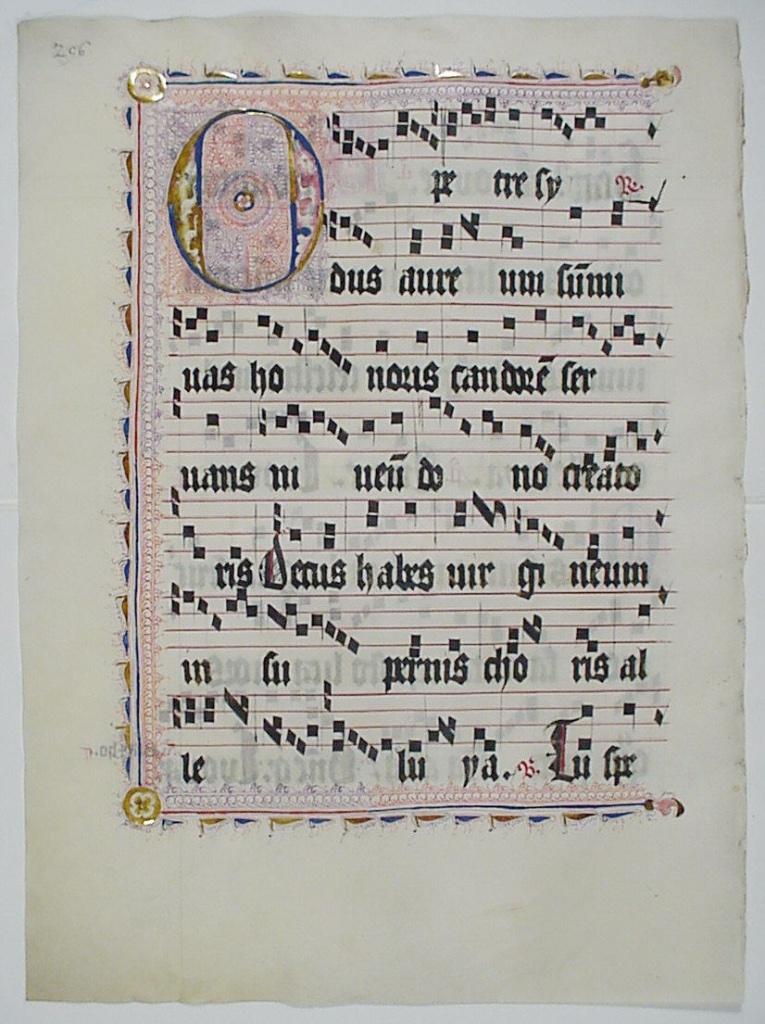 206
O pe tre sy ℟.
dus aure um sūmi
uas ho noris candorē ser
uans in uen̄ do no creato
ris Decus habes uir gi neum
in su pernis cho ris al
le lu ya. ℣. Tu spe